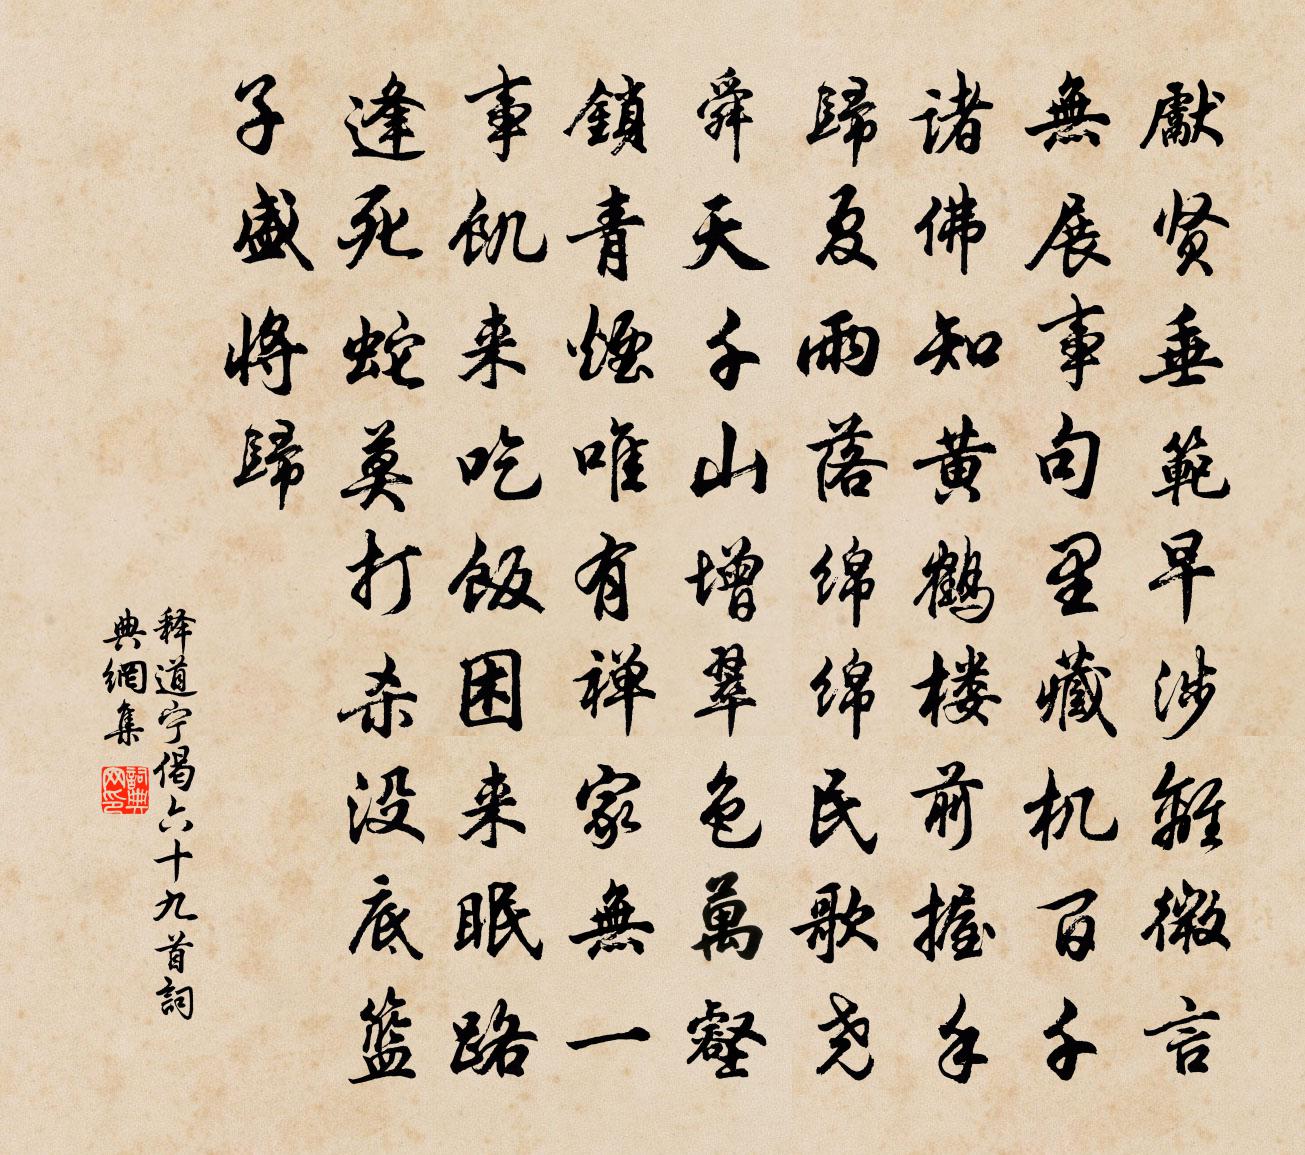 獻贤垂範早涉離微言
無展事句里藏机百千
诸佛知黄鶴楼前握手
歸夏雨落绵绵民歌尧
舜天千山增翠色萬壑
鎖青煙唯有禅家無一
事飢来吃飯困来眠路
逢死蛇莫打杀没底籃
子盛將歸
释道宁偈六十九首詞
典網集
詞典
网印